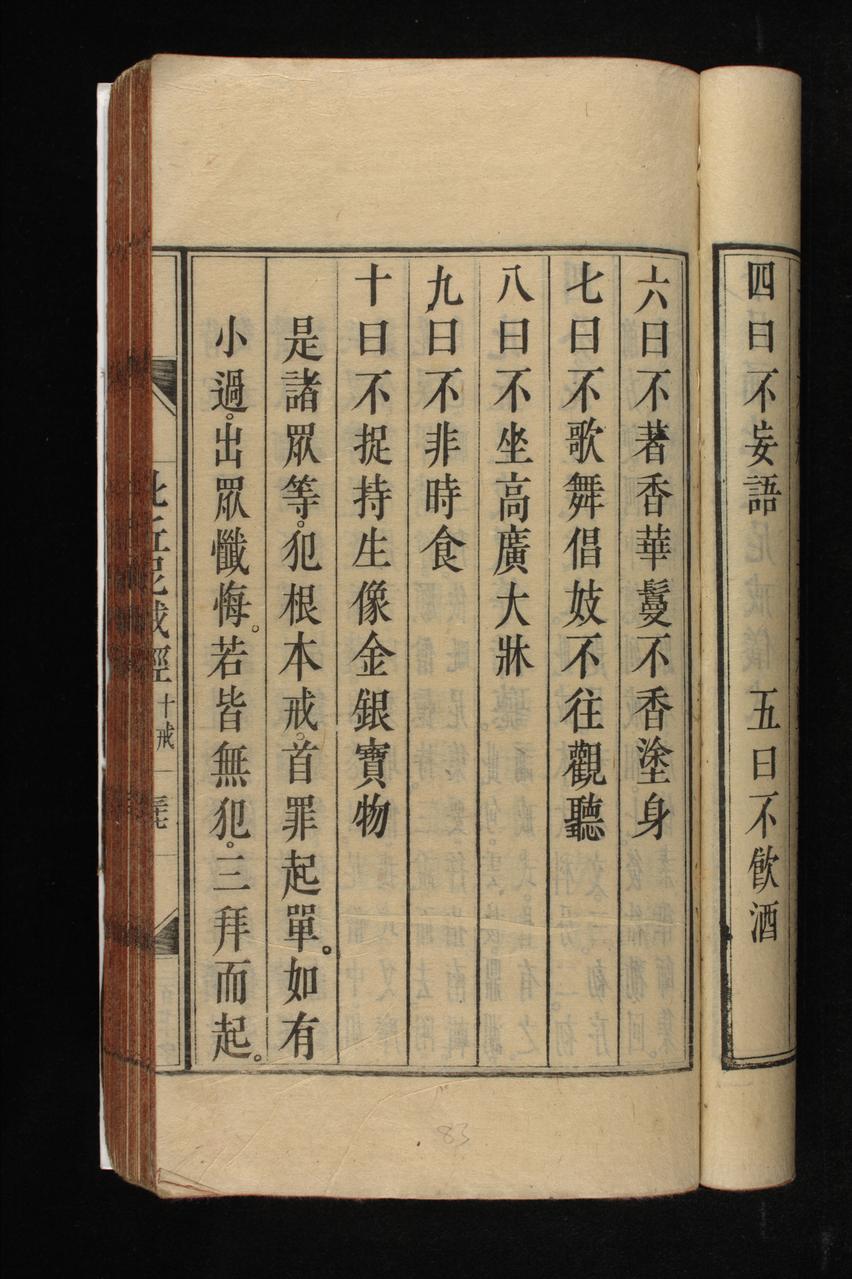 四曰不妄語　五曰不飲酒
六曰不著香華鬘不香塗身
七曰不歌舞倡妓不往觀聽
八曰不坐高廣大牀
九曰不非時食
十曰不捉持生像金銀寶物
是諸眾等。犯根本戒。首罪起單。如有
小過。出眾懺悔。若皆無犯。三拜而起。
比丘尼戒經 十戒
83